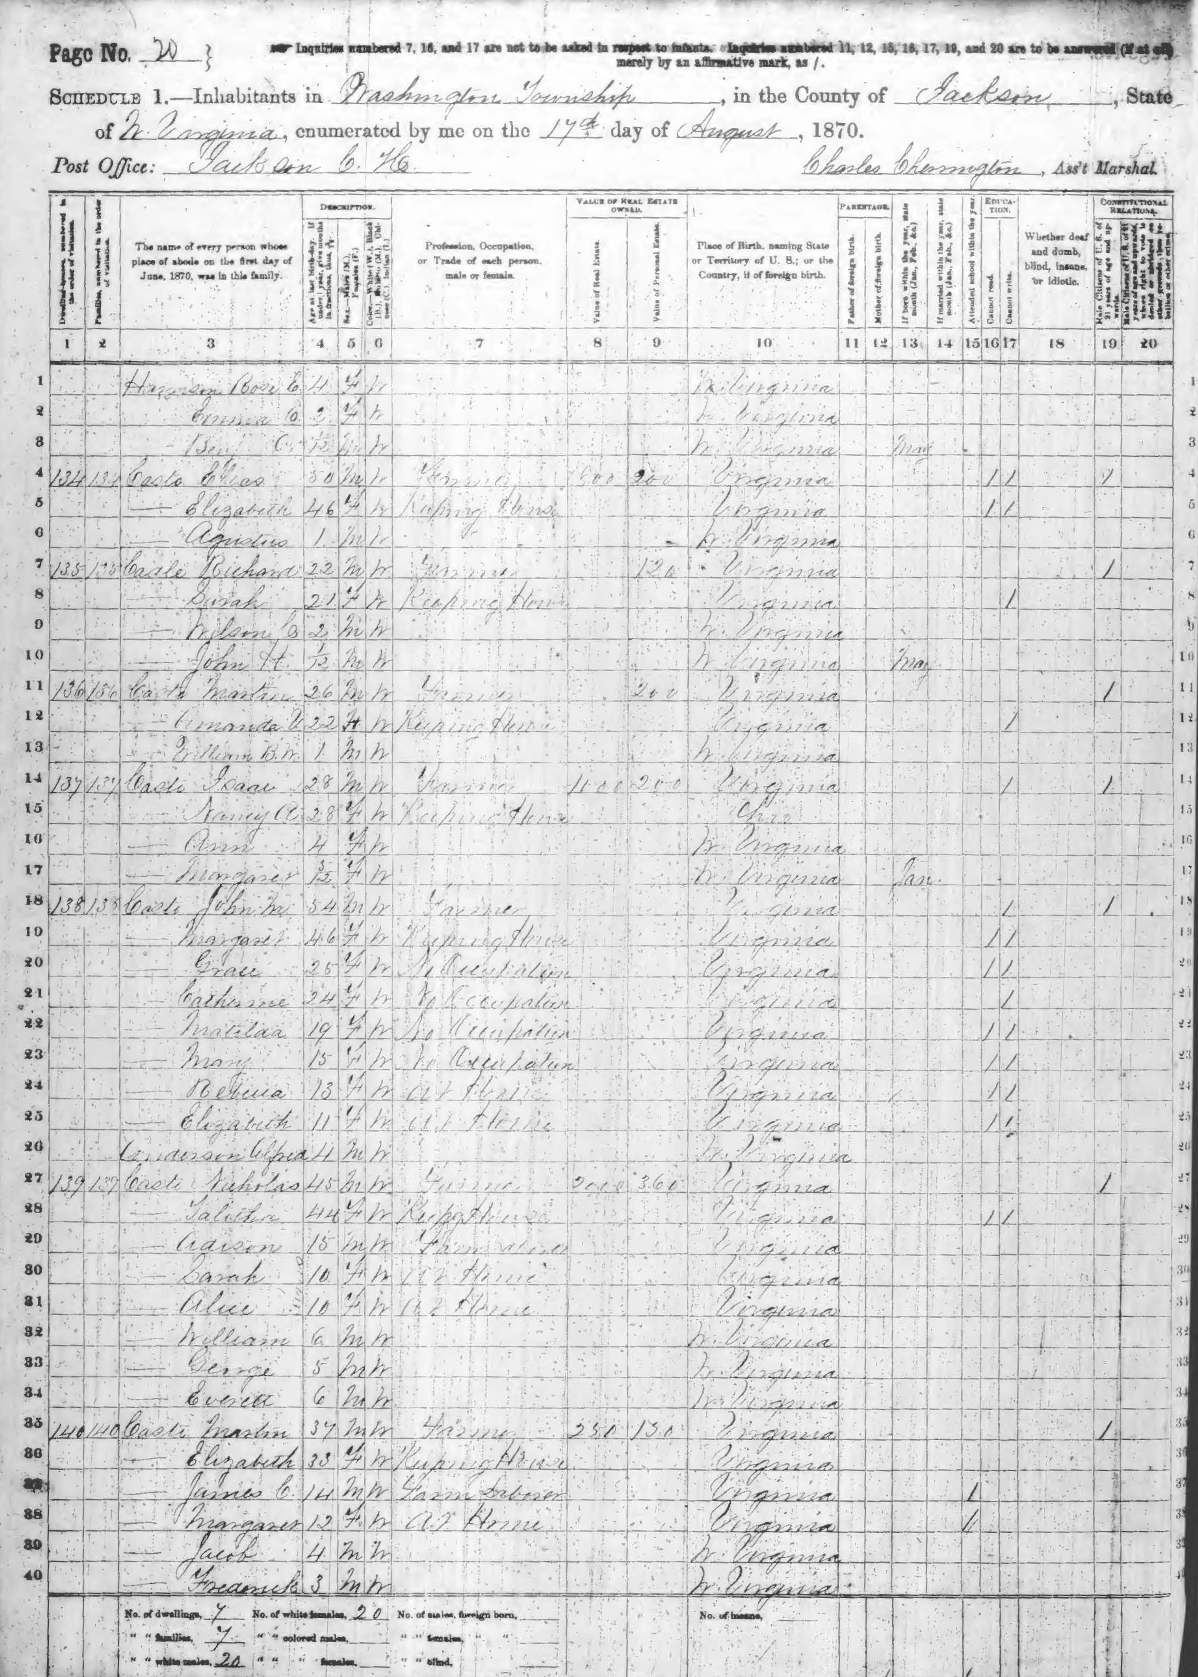 Page No. 20 }
Inquiries numbered 7, 16, and 17 are not to be asked in respect to infants. Inquiries numbered 11, 12, 15, 16, 17, 19, and 20 are to be answered (if at all)
merely by an affirmative mark, as /.
SCHEDULE 1.—Inhabitants in Washington Township, in the County of Jackson, State
of W. Virginia, enumerated by me on the 17th day of August, 1870.
Post Office: Jackson C. H. Charles Cherrington, Ass't Marshal.
DESCRIPTION. VALUE OF REAL ESTATE OWNED. PARENTAGE. EDUCATION. CONSTITUTIONAL RELATIONS.
Dwelling-houses, numbered in the order of visitation. Families, numbered in the order of visitation. The name of every person whose place of abode on the first day of June, 1870, was in this family. Age at last birth-day. If under 1 year, give months in fractions, thus, Sex.—Males (M.), Females (F.) Color.—White (W.), Black (B.), Mulatto (M.), Chinese (C.), Indian (I.) Profession, Occupation, or Trade of each person, male or female. Value of Real Estate. Value of Personal Estate. Place of Birth, naming State or Territory of U. S.; or the Country, if of foreign birth. Father of foreign birth. Mother of foreign birth. If born within the year, state month (Jan., Feb., &c.) If married within the year, state month (Jan., Feb., &c.) Attended school within the year. Cannot read. Cannot write. Whether deaf and dumb, blind, insane, or idiotic. Male Citizens of U. S. of 21 years of age and upwards.
1 2 3 4 5 6 7 8 9 10 11 12 13 14 15 16 17 18 19 20
1 Rose E 4 F W W. Virginia 1
2 Emma C. 2 F W W. Virginia 2
3 Benj 1/12 M W W. Virginia May 3
4 134 134 Casto Elias 50 M W Farmer 500 200 Virginia 1 1 1 4
5 — Elizabeth 46 F W Keeping House Virginia 1 1 5
6 — Agustus 1 M W W. Virginia 6
7 135 135 Casto Richard 22 M W Farmer 120 Virginia 1 7
8 — Sarah 21 F W Keeping House Virginia 1 8
9 — Wilson 2 M W W. Virginia 9
10 — John H 1/12 M W W. Virginia May 10
11 136 136 Casto Martin 26 M W Farmer 200 Virginia 1 11
12 — Amanda 22 F W Keeping House Virginia 1 12
13 — William B. W. 1 M W W. Virginia 13
14 137 137 Casto Isaac 28 M W Farmer 1000 200 Virginia 1 1 14
15 — Nancy A 28 F W Keeping House Ohio 15
16 — Ann 4 F W W. Virginia 16
17 — Margaret 5/12 F W W. Virginia Jan 17
18 138 138 Casto John M 54 M W Farmer Virginia 1 1 18
19 — Margaret 46 F W Keeping House Virginia 1 1 19
20 — Grace 25 F W No Occupation Virginia 1 1 20
21 — Catherine 24 F W No Occupation Virginia 1 21
22 — Matilda 19 F W No Occupation Virginia 1 1 22
23 — Mary 15 F W No Occupation Virginia 1 1 23
24 — Rebecca 13 F W At Home Virginia 1 1 24
25 — Elizabeth 11 F W At Home Virginia 1 1 25
26 Anderson Alfred 4 M W W. Virginia 26
27 139 139 Casto Nicholas 45 M W Farmer 2000 360 Virginia 1 27
28 — Talitha 44 F W Keepg House Virginia 1 1 28
29 — Adison 15 M W Farm Laborer Virginia 29
30 — Sarah 10 F W At Home Virginia 30
31 — Alice 10 F W At Home Virginia 31
32 — William 6 M W W. Virginia 32
33 — George 5 M W W. Virginia 33
34 — Everett 6 M W W. Virginia 34
35 140 140 Casto Martin 37 M W Farmer 250 130 Virginia 1 35
36 — Elizabeth 33 F W Keeping House Virginia 36
37 — James C. 14 M W Farm Laborer Virginia 1 37
38 — Margaret 12 F W At Home Virginia 1 38
39 — Jacob 4 M W W. Virginia 39
40 — Frederick 3 M W W. Virginia 40
No. of dwellings, 7 No. of white females, 20 No. of males, foreign born, No. of insane,
" " families, 7 " " colored males, " " females, " "
" " white males, 20 " " " females, " " blind,